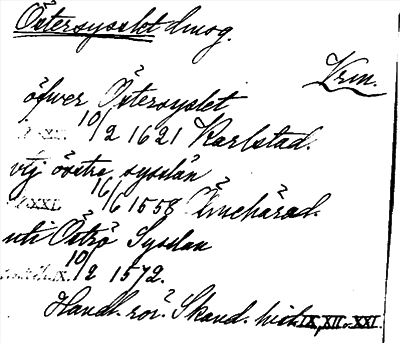 Östersysslet dmog.
Vrm.
öfwer Östersyslet
10/2 1621 Karlstad.
vtj östre sysslan
XXI. 16/6 1558 härad.
uti Öströ Sysslan
10/2 1572.
Handl. rör. Skand. hist. IX, XII o. XXI.